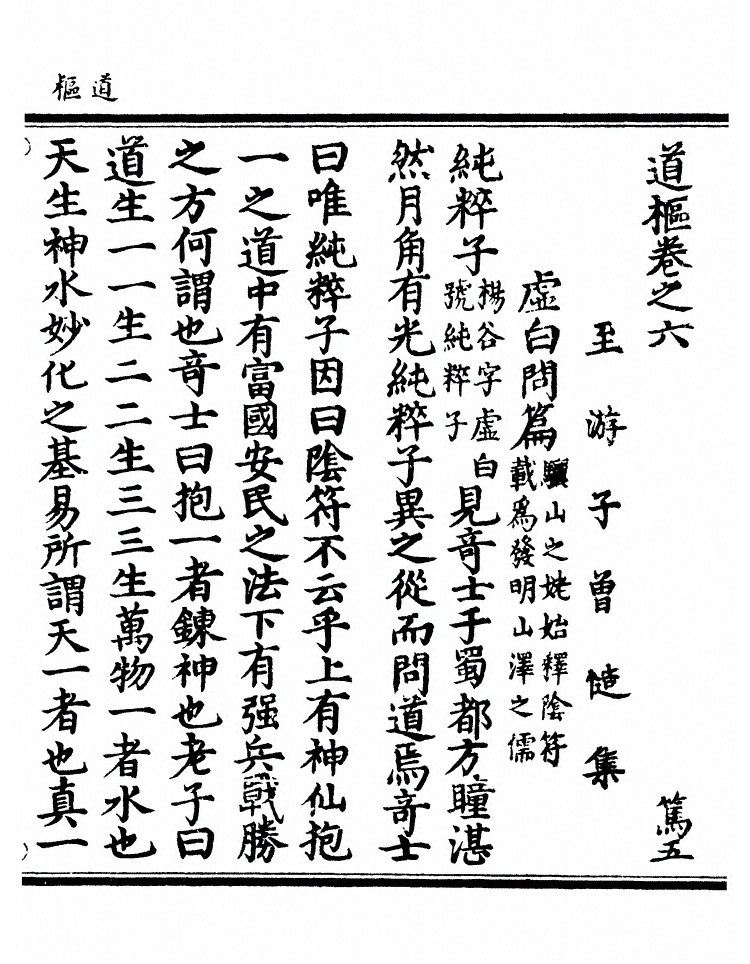 道樞
道樞卷之六
篤五
至游子曾慥集
虛白問篇
驪山之姥始釋陰符
載爲發明山澤之儒
純粹子
楊谷字虛白
號純粹子
見竒士于蜀都方瞳湛
然月角有光純粹子異之從而問道焉竒士
曰唯純粹子因曰陰符不云乎上有神仙抱
一之道中有富國安民之法下有强兵戰勝
之方何謂也竒士曰抱一者鍊神也老子曰
道生一一生二二生三三生萬物一者水也
天生神水妙化之基易所謂天一者也真一